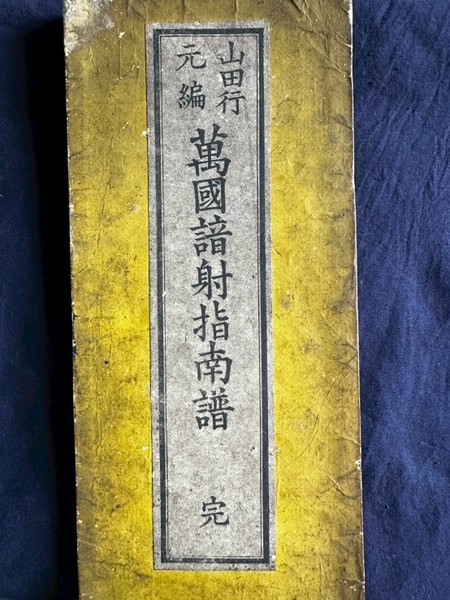 山田行
元編
萬國諳射指南譜
完